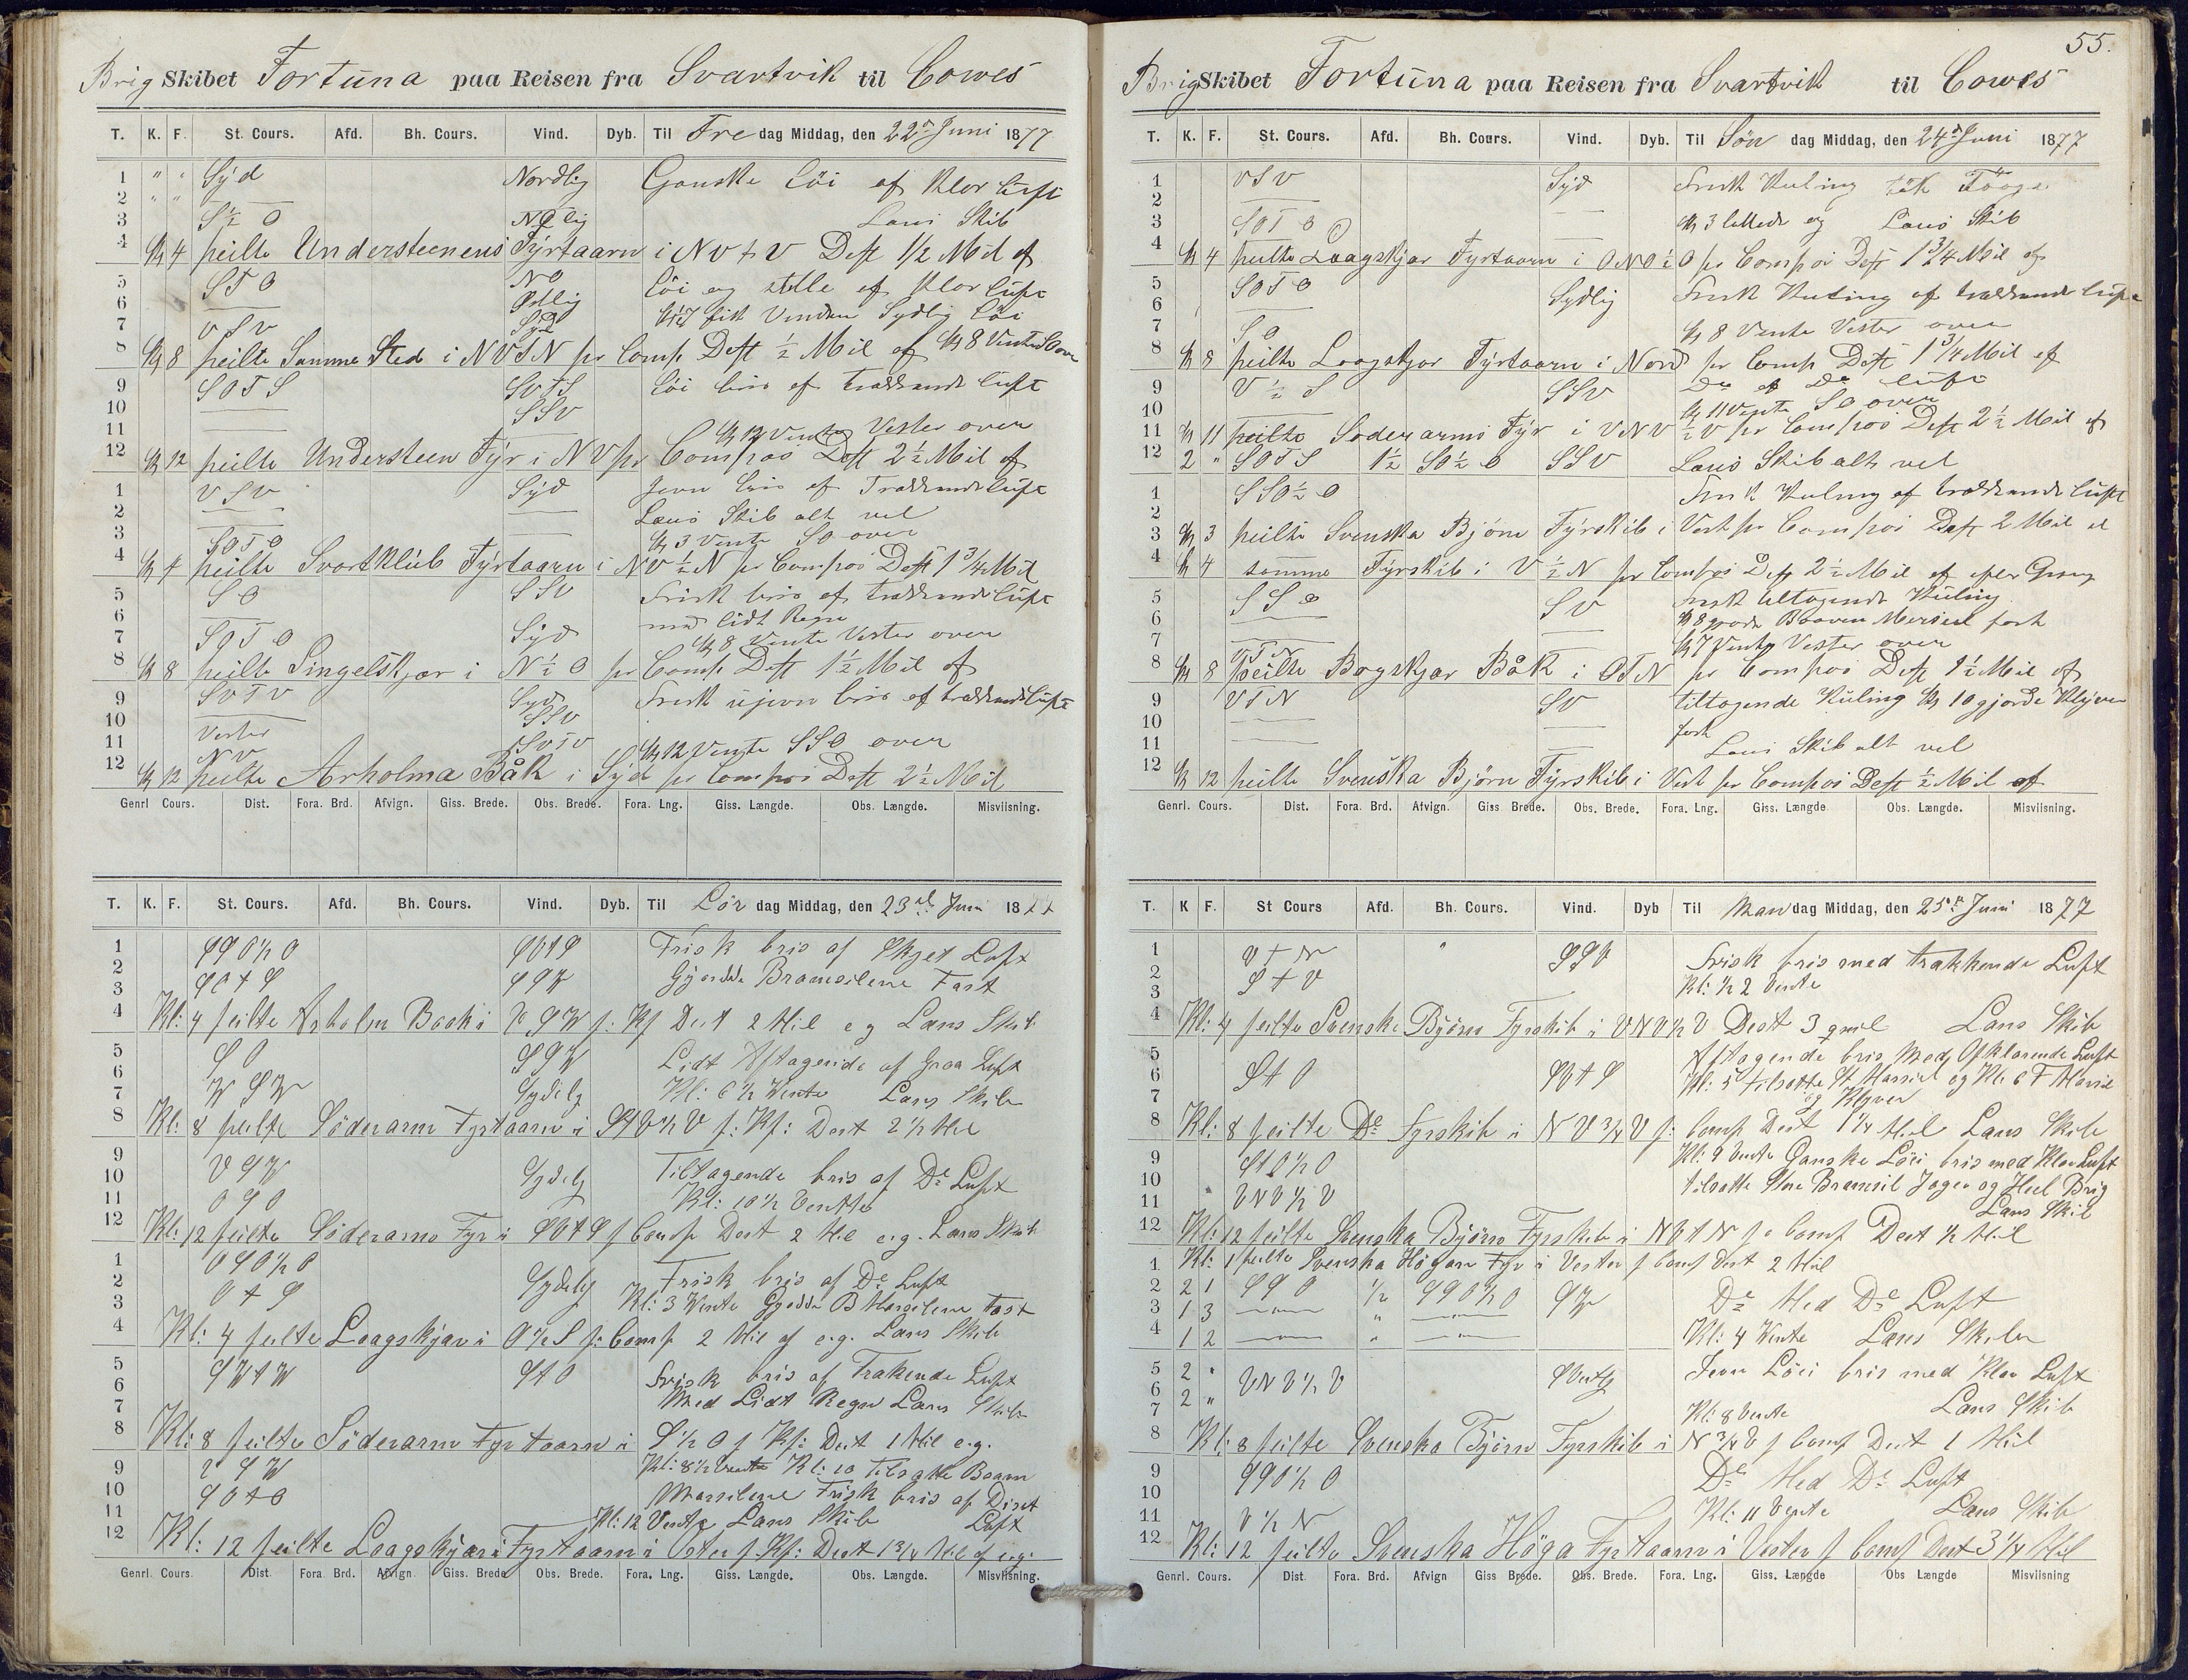 Brig Skibet Fortuna paa Reisen fra Svartvik til Cowes
T. K. F. St. Cours. Afd. Bh. Cours. Vind. Dyb. Til Fre dag Middag, den 22de Juni 1877
1 " " Syd Nordlig Ganske löi af Klar luft
2 " "
3 S ½ O NO lig Læns Skib
4 Kl 4 peilte Understeenens Fÿrtaarn i NV t V Dest ½ Mil af
5 STO NO löi og stille af Klar luft
6 Ostlig
7 VSV Syd Kl 7 fik Vinden Sydlig löi
8 Kl 8 peilte Samme Sted i NVTN pr Comp Dest ½ Mil af Kl 8 Vente SO over
9 SOTS SVTS löi bris af trækkende luft
10 SSV
11 Kl 12 Vente Vester over
12 Kl 12 peilte Understeen Fÿr i NV pr Compas Dest 2½ Mil af
1 VSV Syd Jevn bris af Trækkende luft
2 Læns Skib alt vel
3 SOTO Kl 3 Vente SO over
4 Kl 4 peilte Svartklub Fÿrtaarn i NV ½ N pr Compas Dest 1 ¾ Mil
5 SO SSV Frisk bris af trækkende luft
6 med lidt Regn
7 SOTO Syd Kl 8 Vente Vester over
8 Kl 8 peilte Singelskjær i N ½ O pr Comp Dest 1½ Mil af
9 SVTV Syd Frisk ujevn bris af trækkende luft
10 SSV
11 Vester SVTV Kl 12 Vente SSO over
NV
12 Kl 12 peilte Arholma Båk i Syd pr Compas Dest 2½ Mil
Genrl Cours. Dist. Fora. Brd. Afvign. Giss. Brede. Obs. Brede. Fora. Lng. Giss. Længde. Obs. Længde. Misviisning.
T. K. F. St. Cours. Afd. Bh. Cours. Vind. Dyb. Til Lör dag Middag, den 23de Juni 1877
1 SSO½O SOtS Frisk bris af Skyet Luft
2 SOtS SSW Gjordde Bramseilene Fast
3
4 Kl: 4 peilte Arholm Baak i V S W p: Kp Dest 2 Mil eg Læns Skib
5 SO SSW Lidt Aftagende af Graa Luft
6 WSW Sydelg Kl: 6½ Vente Læns Skib
7
8 Kl: 8 peilte Söderarm Fyrtaarn i StV½V p: Kp: Dest 2½ Mil
9 VSW Sydelg Tiltagende bris af De Luft
10 OSO Kl: 10½ Vente
11
12 Kl: 12 peilte Söderarms Fyr i SOtS p Comp Dest 2 Mil e.g. Læns Skib
1 OSO½O Frisk bris af De Luft
2 OtS Sydelg Kl: 3 Vente Gjordde B Marseilene Fast
3
4 Kl: 4 peilte Laagskjær i O½S p: Comp 2 Mil af e.g. Læns Skib
5 SWtW StO Frisk bris af Trækende Luft
6 Med Lidt Regn Læns Skib
7
8 Kl: 8 peilte Söderarm Fyrtaarn i S½O p Kp: Dest 1 Mil e.g.
9 VSW Kl: 8½ Vente Kl: 10 Tilsatte Boam
10 SOtO Marseilene Frisk bris af Diset
11 Kl: 12 Vente Læns Skib Luft
12 Kl: 12 peilte Laagskjær Fyrtaarn i Oster p Kp: Dest 1¾ Mil af e.g.
Genrl Cours. Dist. Fora Brd. Afvign. Giss. Brede Obs. Brede. Fora. Lng. Giss. Længde. Obs. Længde. Misviisning.
55.
Brig Skibet Fortuna paa Reisen fra Svartvik til Cowes
T. K. F. St. Cours. Afd. Bh. Cours. Vind. Dyb. Til Sön dag Middag, den 24de Juni 1877
1 VSV Syd Frisk Kuling tök Tååge
2
3 SOTO Kl 3 lettede og Læns Skib
4 Kl 4 peilte Laagskjær Fyrtaarn i ONO ½ O pr Compas Dest 1 ¾ Mil af
5 SOTO Sydlig Frisk Kuling af trækkende luft
6
7 SO Kl 8 Vente Vester over
8 Kl 8 peilte Laagskjær Fÿrtaarn i Nord pr Comp Dest 1 ¾ Mil af
9 V ½ S SSV Do af Do luft
10 Kl 11 Vente SO over
11 Kl 11 peilte Söderarms Fÿr i VNV ½ V pr Compas Dest 2½ Mil af
12 2 " SOTS 1½ SO½O SSV Læns Skib alt vel
1 SSO½O Frisk Kuling af trækkende luft
2
3 Kl 3 peilte Svenska Bjørn Fÿrskib i Vest pr Compas Dest 2 Mil af
4 Kl 4 samme Fÿrskib i V ½ N pr Compas Dest 2½ Mil af efter Gisng
5 SSO SV Frisk tiltagende Kuling
6 fast
7 VTN Kl 7 Vente Vester over
8 Kl 8 peilte Bogskjær Båk i OTN pr Compas Dest 1½ Mil af
9 VTN SV tiltagende Kuling Kl 10 gjorde Klÿver
10 fast
11 Læns Skib alt vel
12 Kl 12 peilte Svenska Björn Fÿrskib i Vest pr Compas Dest ½ Mil af
Genrl. Cours. Dist. Fora. Brd. Afvign. Giss Brede. Obs. Brede. Fora. Lng. Giss. Længde Obs. Længde. Misviisning.
T. K F. St Cours Afd. Bh. Cours. Vind. Dyb Til Man dag Middag, den 25de Juni 1877
1 VtN " SSV Frisk bris med Trækkende Luft
2 StV Kl: ½2 Vente
3
4 Kl: 4 peilte Svenska Björn Fyrskib i VNV½V Dest 3 qmil Læns Skib
5 Aftagende bris Med Opklarende Luft
6 StO SVtS Kl: 5 tilsatte St Marseil og Kl: 6 F Marseil
7 og Klyver
8 Kl: 8 peilte De Fyrskib i NV¾V p: Comp Dest 1¼ Mil Læns Skib
9 StO½O Kl: 9 Vente Ganske Löi bris med Klar Luft
10 tilsatte Store Bramseil Jager og Heel Brig
11 VNV½V Læns Skib
12 Kl: 12 peilte Svenska Björn Fyrskib i NVtN p Comp Dest ½ Mil
1 Kl: 1 peilte Svenska Högarn Fyr i Vester p Comp Dest 2 Mil
2 2 1 SSO ½ SSO½O SW De Med De Luft
3 1 3 "
4 1 2 " Kl: 4 Vente Læns Skib
5 2 " VNV½V SVestlg Jevn Löi bris med Klar Luft
6 2 "
7 Kl: 8 Vente Læns Skib
8 Kl: 8 peilte Svenska Björn Fyrskib i N¾V p Comp Dest 1 Mil
9 SSO½O De Med De Luft
10
11 V½N Kl: 11 Vente Læns Skib
12 Kl: 12 peilte Svenska Höga Fyrtaarn i Vester p Comp Dest 3¼ Mil
Genrl. Cours. Dist. Fora. Brd. Afvign Giss Brede. Obs. Brede. Fora. Lng. Giss. Længde Obs Længde Misviisning